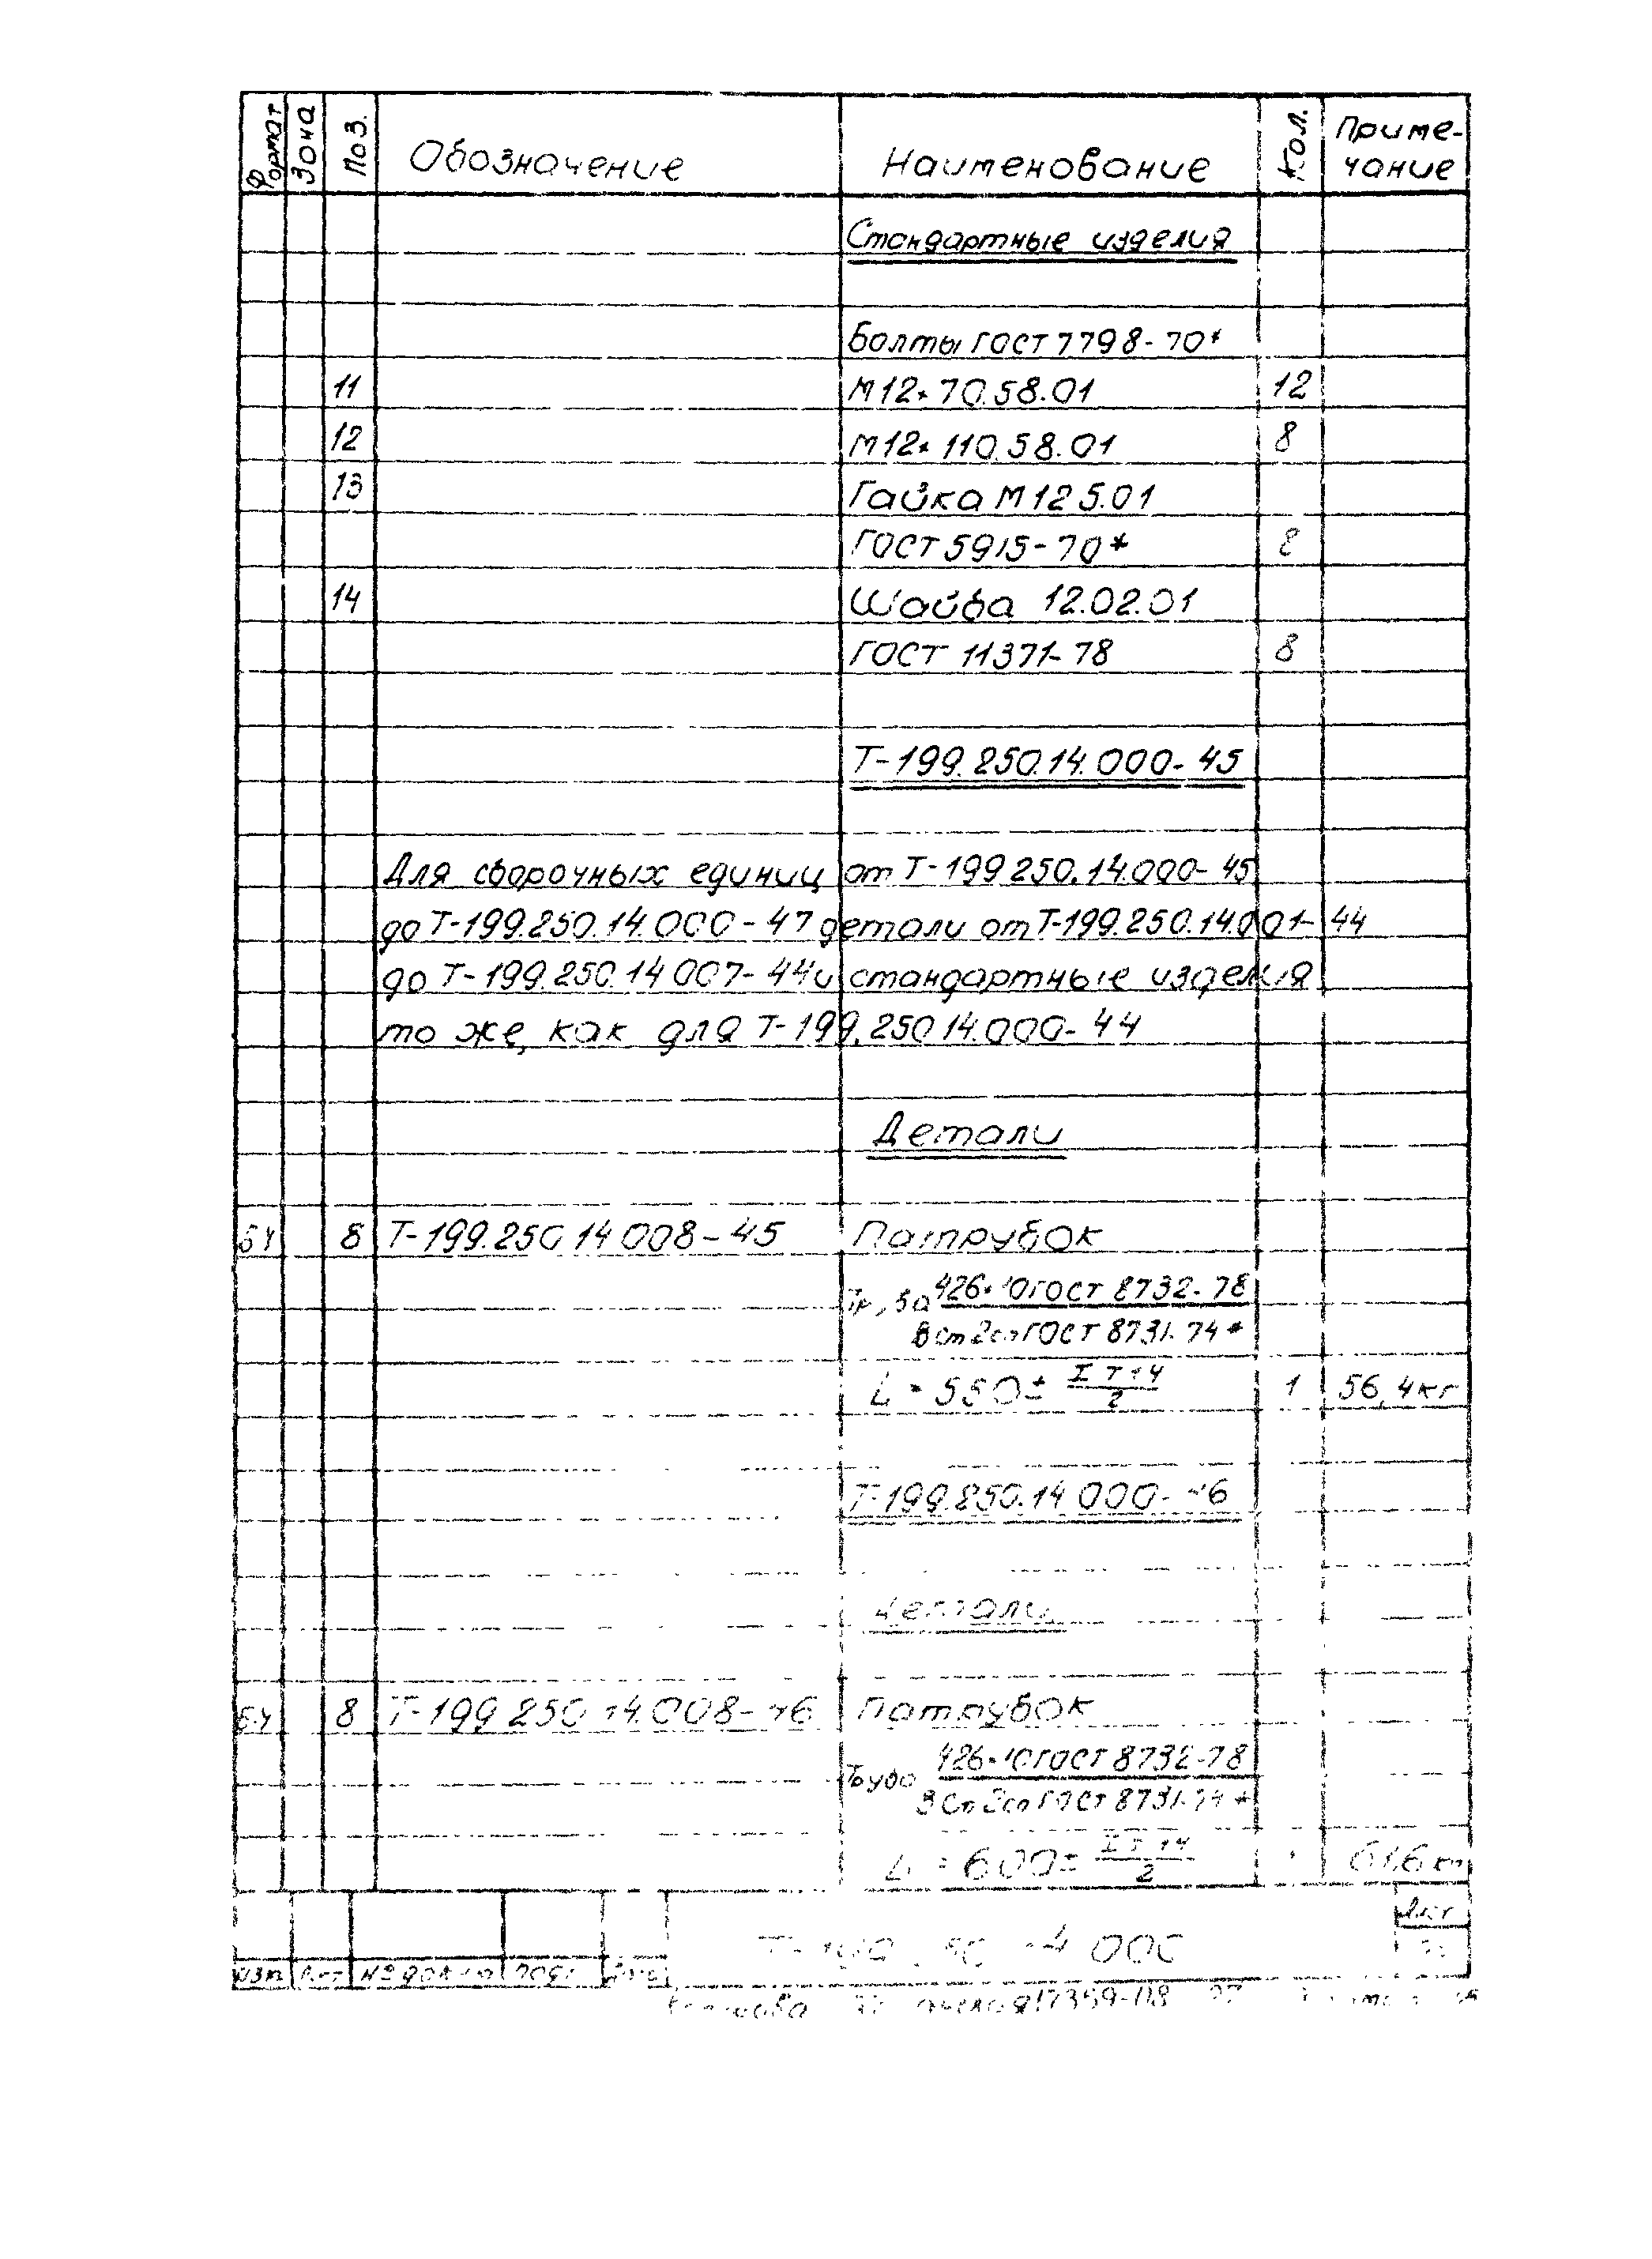 Формат Зона Поз. Обозначение Наименование Кол. Приме-
чание
Стандартные изделия
Болты ГОСТ 7798-70*
11 М12×70.58.01 12
12 М12×110.58.01 8
13 Гайка М12 5.01
ГОСТ 5915-70* 8
14 Шайба 12.02.01
ГОСТ 11371-78 8
Т-199.250.14.000-45
Для сборочных единиц от Т-199 250.14.000-45
до Т-199.250.14.000-47 детали от Т-199.250.14.001-44
до Т-199.250.14 007-44 и стандартные изделия
то же, как для Т-199.250 14.000-44
Детали
БЧ 8 Т-199.250 14 008-45 Патрубок
Труба 426×10 ГОСТ 8732-78
ВСт2сп ГОСТ 8731-74*
L=550± IT14/2 1 56,4кг
Т-199.250.14 000-46
Детали
БЧ 8 Т-199 250 14.008-46 Патрубок
Труба 426×10 ГОСТ 8732-78
ВСт2сп ГОСТ 8731-74*
L=600± IT14/2 61,6кг
Лист
Изм Лист № докум Подп Дата
17359-08